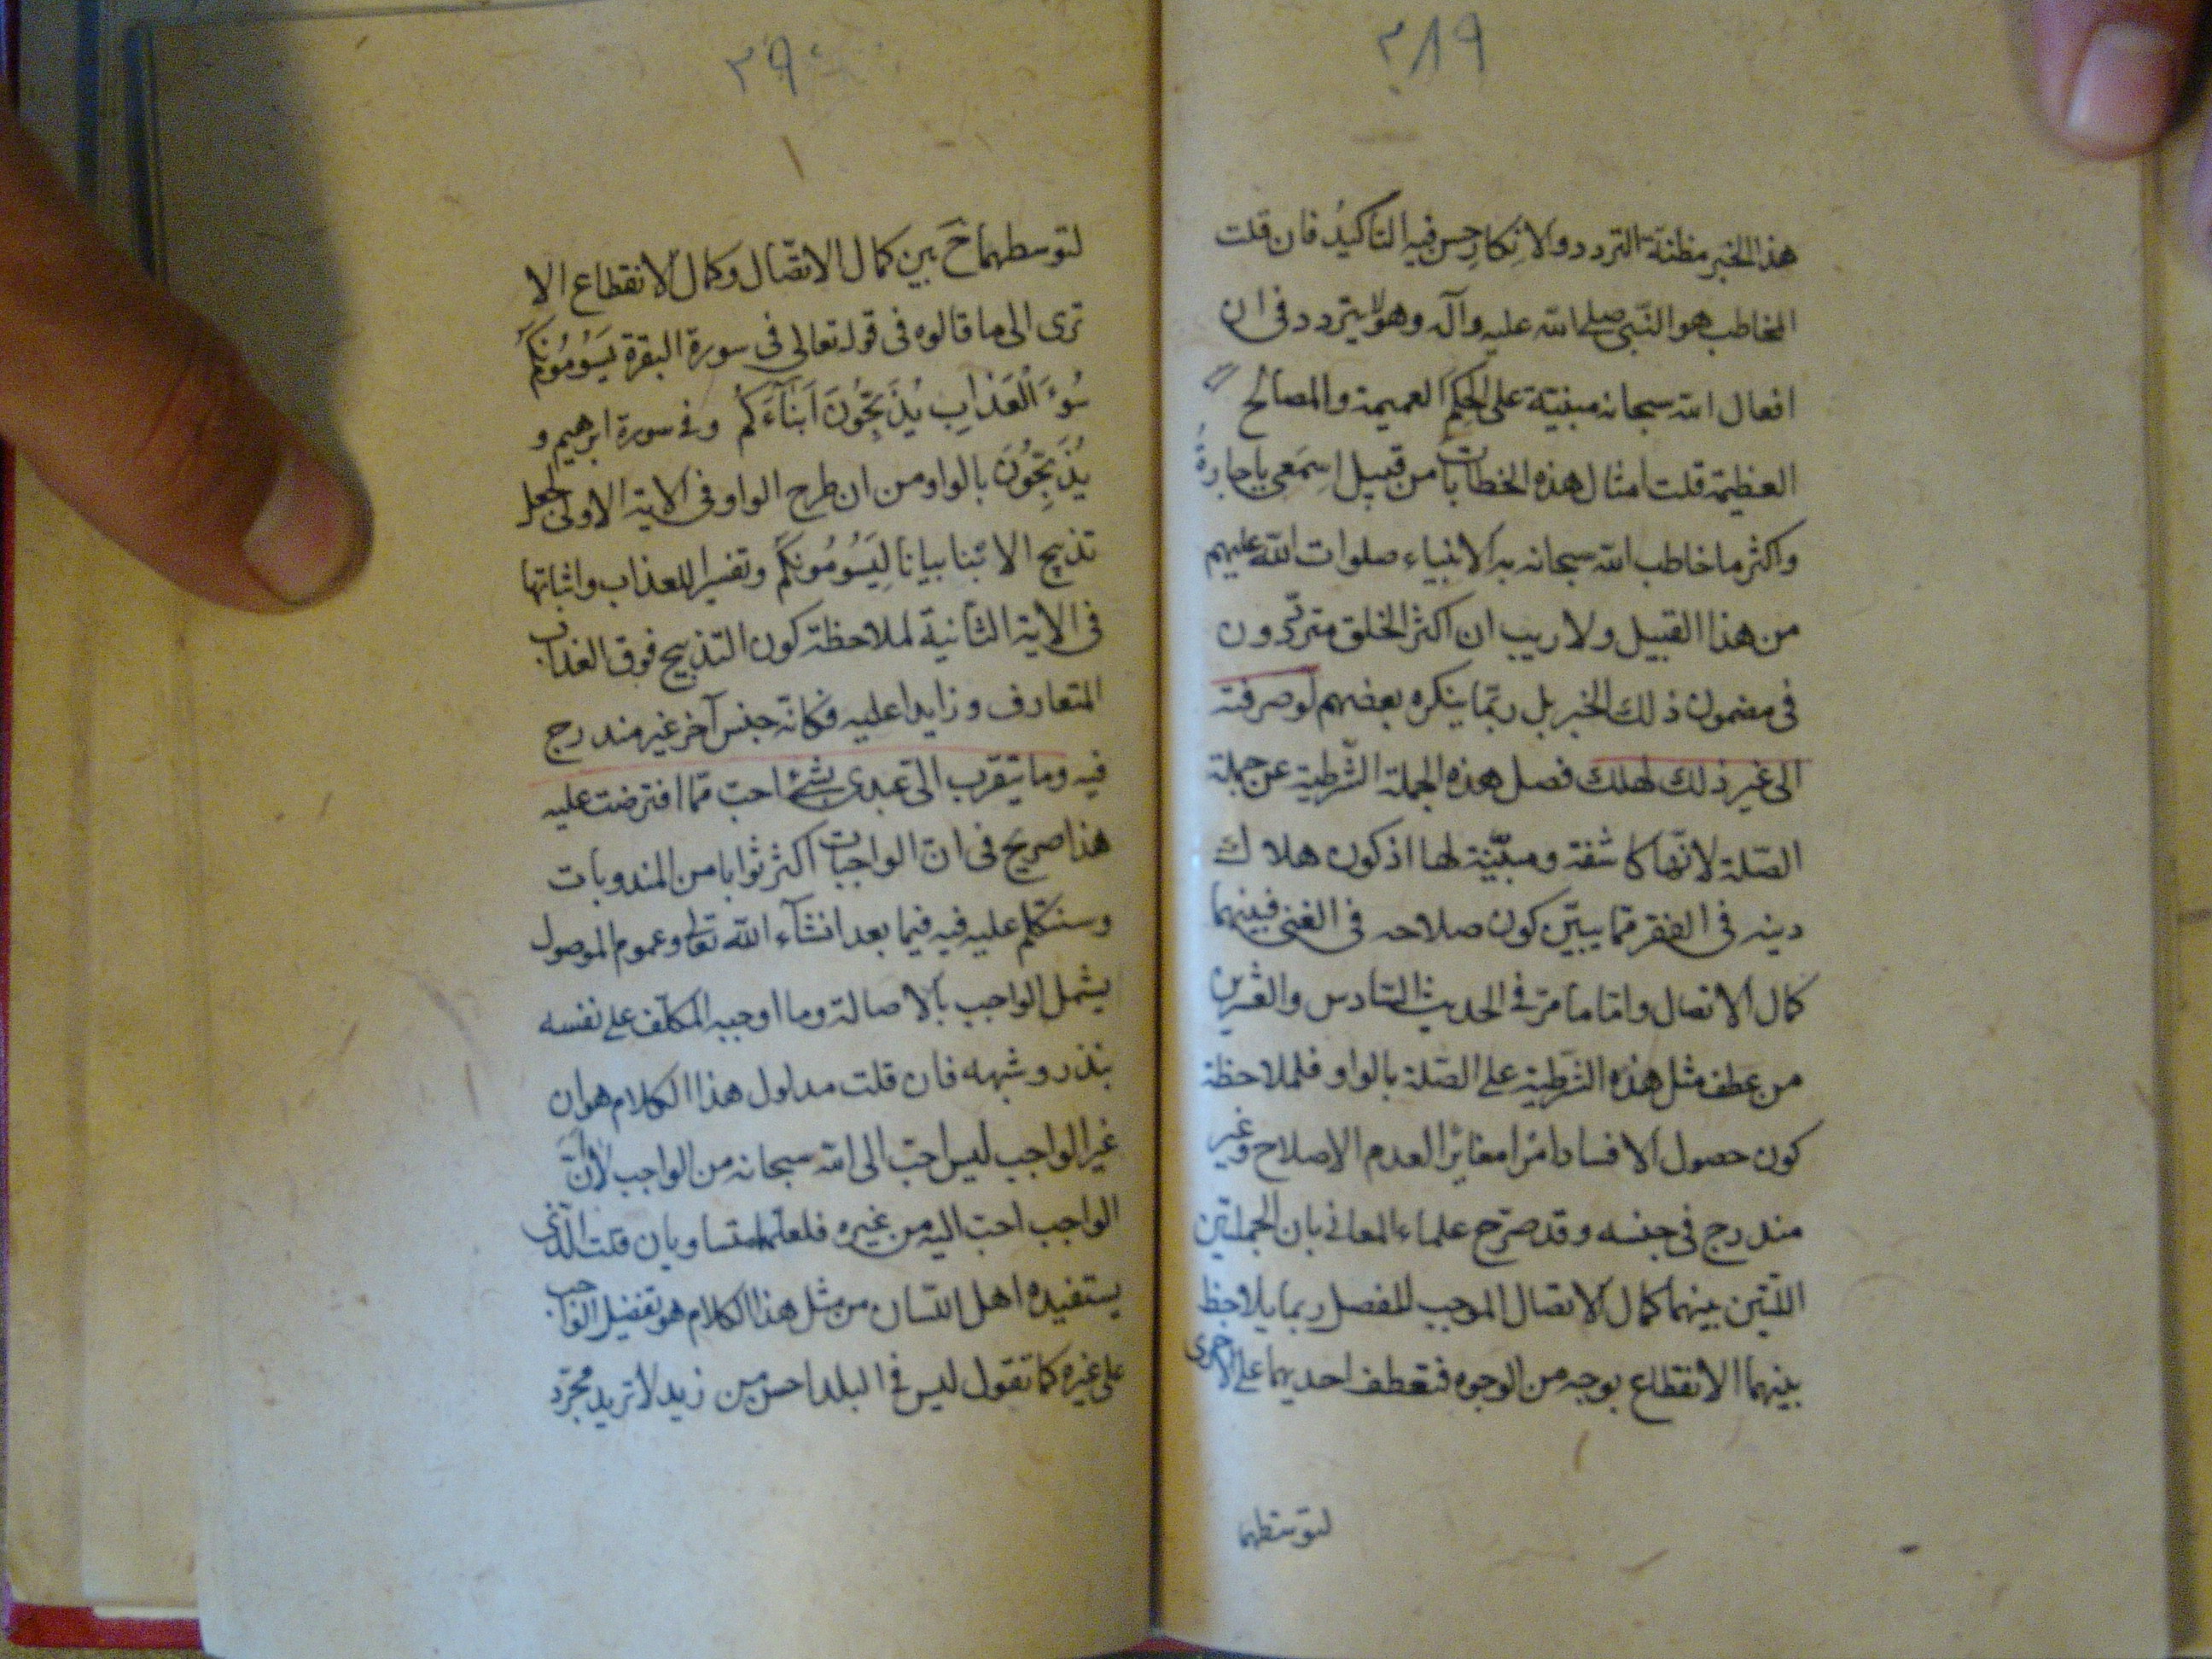 ٢٨٩
هذا الخبر مظنة التردد والانكار حسن فيه التاكيد فان قلت
المخاطب هو النبي صلى الله عليه وآله وهو لا يتردد في ان
افعال الله سبحانه مبنية على الحكم العميمة والمصالح
العظيمة قلت امثال هذه الخطابات من قبيل اسمعي يا جارة
واكثر ما خاطب الله سبحانه به الانبياء صلوات الله عليهم
من هذا القبيل ولا ريب ان اكثر الخلق مترددون
في مضمون ذلك الخبر بل ربما ينكره بعضهم لو صرفته
الى غير ذلك لهلك فصل هذه الجملة الشرطية عن جملة
الصلة لانها كاشفة ومبينة لها اذ كون هلاك
دينه في الفقر مما يبين كون صلاحه في الغنى فبينهما
كمال الاتصال واما ما مر في الحديث السادس والعشرين
من عطف مثل هذه الشرطية على الصلة بالواو فلملاحظة
كون حصول الافساد امرا مغايرا لعدم الاصلاح وغير
مندرج في جنسه وقد صرح علماء المعاني بان الجملتين
اللتين بينهما كمال الاتصال الموجب للفصل ربما يلاحظ
بينهما الانقطاع بوجه من الوجوه فتعطف احديهما على الاخرى
لتوسطهما
٢٩٠
لتوسطهما ح بين كمال الاتصال وكمال الانقطاع الا
ترى الى ما قالوه في قوله تعالى في سورة البقرة يَسُومُونَكُمْ
سُوءَ الْعَذَابِ يُذَبِّحُونَ اَبْنَاءَكُمْ وفي سورة ابرهيم و
يُذَبِّحُونَ بالواو من ان طرح الواو في الاية الاولى لجعل
تذبيح الابنا بيانا لِيَسُومُونَكُمْ وتفسيرا للعذاب واثباتها
في الاية الثانية لملاحظة كون التذبيح فوق العذاب
المتعارف وزايدا عليه فكانه جنس آخر غير مندرج
فيه وما يتقرب الى عبدى بشئ احب مما افترضت عليه
هذا صريح في ان الواجبات اكثر ثوابا من المندوبات
وسنتكلم عليه فيه فيما بعد انشآء الله تعالى وعموم الموصول
يشمل الواجب بالاصالة وما اوجبه المكلف على نفسه
بنذر وشبهه فان قلت مدلول هذا الكلام هو ان
غير الواجب ليس احب الى الله سبحانه من الواجب لا ان
الواجب احب اليه من غيره فلعلهما متساويان قلت الذى
يستفيده اهل اللسان من مثل هذا الكلام هو تفضيل الواجب
على غيره كما تقول ليس في البلد احسن من زيد لا تريد مجرد